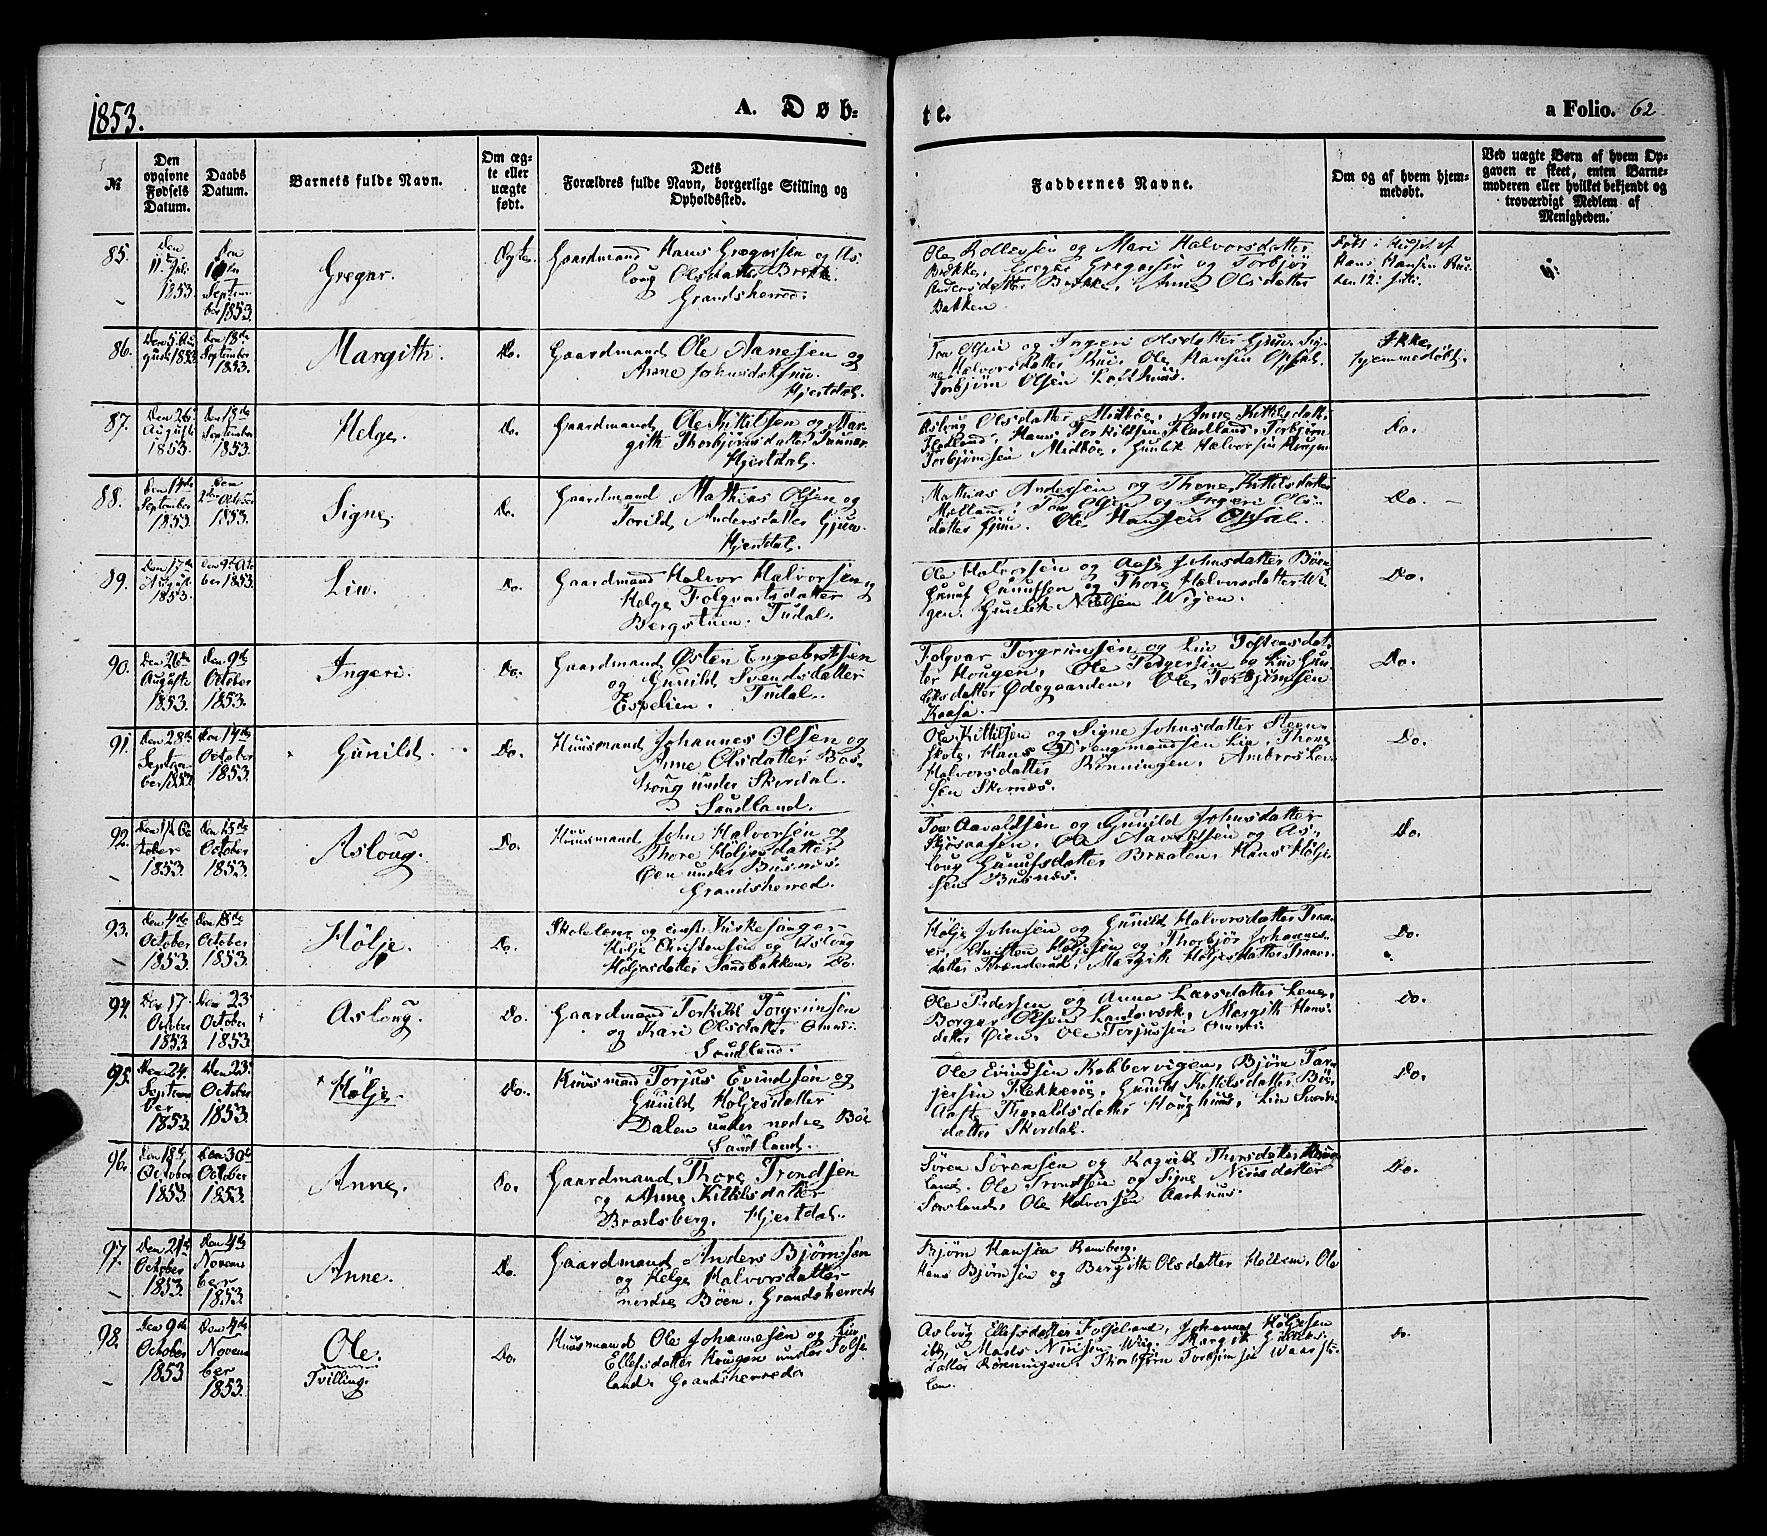 1853.
A. Døb-
te.
a Folio. 62
№
Den opgivne Fødsels Datum.
Daabs Datum.
Barnets fulde Navn.
Om ægte eller uægte født.
Dets Forældres fulde Navn, borgerlige Stilling og Opholdssted.
Faddernes Navne.
Om og af hvem hjemmedøbt.
Ved uægte Børn af hvem Opgaven er skeet, enten Barnemoderen eller hvilket bekjendt og troværdigt Medlem af Menigheden.
85.
Den
11. Juli
1853
Den
Septem
ber 1853.
Gregar.
Ægte.
Gaardmand Hans Gregarsen og As
loug Olsdatter Brekk
Gransherred.
Ole Rollefsen og Mari Halvorsdatter
Brekke, Gregar Gregarsen og Torbjør
Andersdatter Brekke, Anne Olsdatter
Bakken
Hans Hansen
den 12: Juli.
86.
Den 5. Au
gust 1853
Den 18de
September
1853.
Margith.
Do.
Gaardmand Ole Aanesen og
Anne Johnsdatter
Hjertdal.
Tov Olsen og Ingeri Olsdatter Gjuv, Sig-
ne Halvorsdatter, Ole Hansen Opsal,
Torbjørn Olsen
Ikke
hjemmedøbt.
87.
Den 26
August
1853
Den 18de
September
1853.
Helge.
Do.
Gaardmand Ole Kittilsen og Mar-
gith Thorbjørnsdatter
Hjertdal.
Aslaug Olsdatter Midbøe, Anne Kittelsdatt.
Fladland, Hans Torkildsen Fladland, Torbjørn
Torbjørnsen Midbøe, Gunlik Halvorsen
Do.
88.
Den 14de
September
1853
Den
2den October
1853.
Signe.
Do.
Gaardmand Mathias Olsen og
Torild Andersdatter Gjuv
Hjertdal.
Mathias Andersen og Thone Kittilsdatter
Tov Olsen og Ingeri Ols-
datter Gjuv. Ole Hansen Opsal.
Do.
89.
Den 17de
August
1853
Den 9de Octo
ber 1853.
Liv.
Do.
Gaardmand Halvor Halvorsen og
Helge Folqvartsdatter
Bergstuen. Tudal.
Ole Halvorsen og Aase Johnsdatter Bøen
Gunuf Gunufsen og Thore Halvorsdatter Vi-
gen. Gunlik Nielsen Wigen.
Do.
90.
Den 26de
August
1853
Den 9de
October
1853.
Ingeri.
Do.
Gaardmand Østen Engebretsen
og Gunild Svendsdatter
Espelien. Tudal.
Folqvar Torgrimsen og Liv Tostensdat-
ter Hougen, Ole Pedersen og Liv Gun-
leksdatter Ødegaarden, Ole Torbjørnsen
Kaasa.
Do.
91.
Den 28de
Septem-
ber 1853
Den 14de
October
1853.
Gunild.
Do.
Huusmand Johannes Olsen og
Anne Olsdatter
under Skordal.
Saudland.
Ole Kittilsen og Signe Johnsdatter Steen-
Hans Drengmandsen Lia, Thone
Halvorsdatter Rønningen, Ambros Lar
sen Skernæs.
Do.
92.
Den 1ste Oc
tober
1853.
Den 15de
October
1853.
Asloug.
Do.
Huusmand John Halvorsen og
Thore Høljesdatter
Øen under Busnes.
Gransherred.
Tov Aavaldsen og Gunild Johnsdatter
Ole Aavaldsen og As-
loug Gunufsdatter Braaten, Hans Hølje
sen Busnæs.
Do.
93.
Den 4de
October
1853.
Den 15de
October
1853.
Hølje.
Do.
Skolelærer og const. Kirkesanger
Hølje Christensen og Asloug
Høljesdatter Sandbakken. Do.
Hølje Johnsen og Gunild Halvorsdatter Traa-
en, Christen Høljesen og Thorbjør Johannes-
datter Trænderud, Margith Høljesdatter Traaen.
Do.
94.
Den 17.
October
1853
Den 23
October
1853.
Asloug.
Do.
Gaardmand Torkild Torgrimsen
og Kari Olsdatter Omnes.
Saudland.
Ole Pedersen og Anne Larsdatter Lene,
Borgar Olsen Landsverk, Margith Hans-
datter Øien, Ole Torjussen Omnes.
Do.
95.
Den 24.
Septem
ber
1853
Den 23.
October
1853.
Hølje.
Do.
Huusmand Torjus Evindsen og
Gunild Høljesdatter
Dalen under nedre Bøe
Saudland.
Ole Evindsen Kobbervigen, Bjørn Tar-
jersen Flekkerøe, Gunild Kittilsdatter Bøe,
Aaste Thoraldsdatter Houghuus, Liv Svens-
datter Skordal.
Do.
96.
Den 18.
October
1853
Den 30te
October
1853.
Anne.
Do.
Gaardmand Thore Trondsen
og Anne Kittilsdatter
Bradsberg. Hjertdal.
Søren Sørensen og Ragnild Thorsdatter
land. Ole Trondsen og Signe Nirisdatter
Sovland, Ole Halvorsen Aarhuus.
Do.
97.
Den 21de
October
1853.
Den 4de
Novem
ber
1853.
Anne.
Do.
Gaardmand Anders Bjørnsen
og Helge Halvorsdatter
nedre Bøen, Gransherred
Bjørn Hansen Ramberg.
Hans Bjørnsen og Bergith Olsdatter Kollem, Ole
98.
Den 9de
October
1853
Den 4de
Novem
ber
1853.
Ole.
Tvilling.
Do.
Huusmand Ole Johannesen og
Ellefsdatter Haugen under Folse
land. Gransherred
Aslaug Ellefsdatter Folseland, Johannes Høljesen
Mads Nirisen Wiig. Margit
datter Rønningen, Thorbjørn Torbjørnsen
len.
Do.